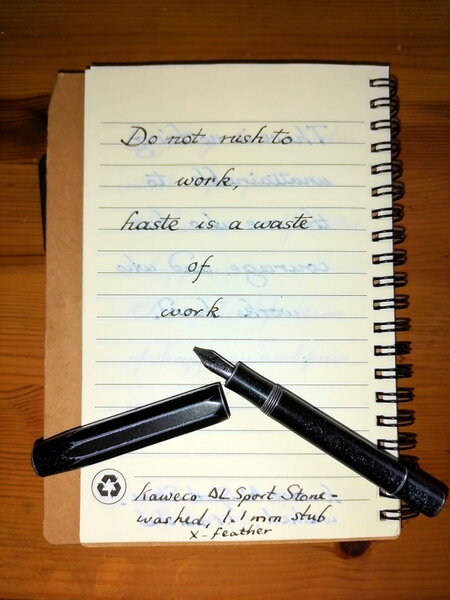 Do not rush to
work,
haste is a waste
of
work
Kaweco AL Sport Stone-
washed, 1.1 mm stub
x-feather